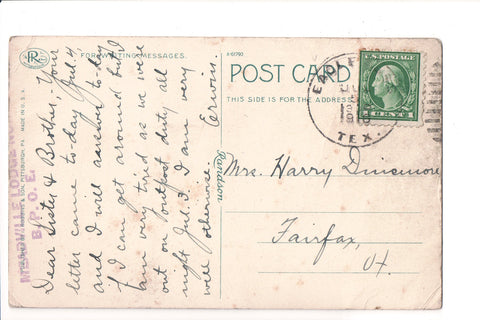 FOR WRITING MESSAGES.
Dear Sister & Brother,- Your
letter came to-day Jul. 4,
and I will answer to-day
if I can get around but I
am very tired as we were
out on outpost duty all
night Jul. 3. I am very
well otherwise. Erwin.
A-61790
POST CARD
THIS SIDE IS FOR THE ADDRESS
EAGLE
TEX.
U.S. POSTAGE
1 CENT 1
Mrs. Harry Dinsmore
Fairfax,
Vt.
MADE IN U.S.A.
& SON, PITTSBURGH, PA.
LODGE
B. P. O. E.